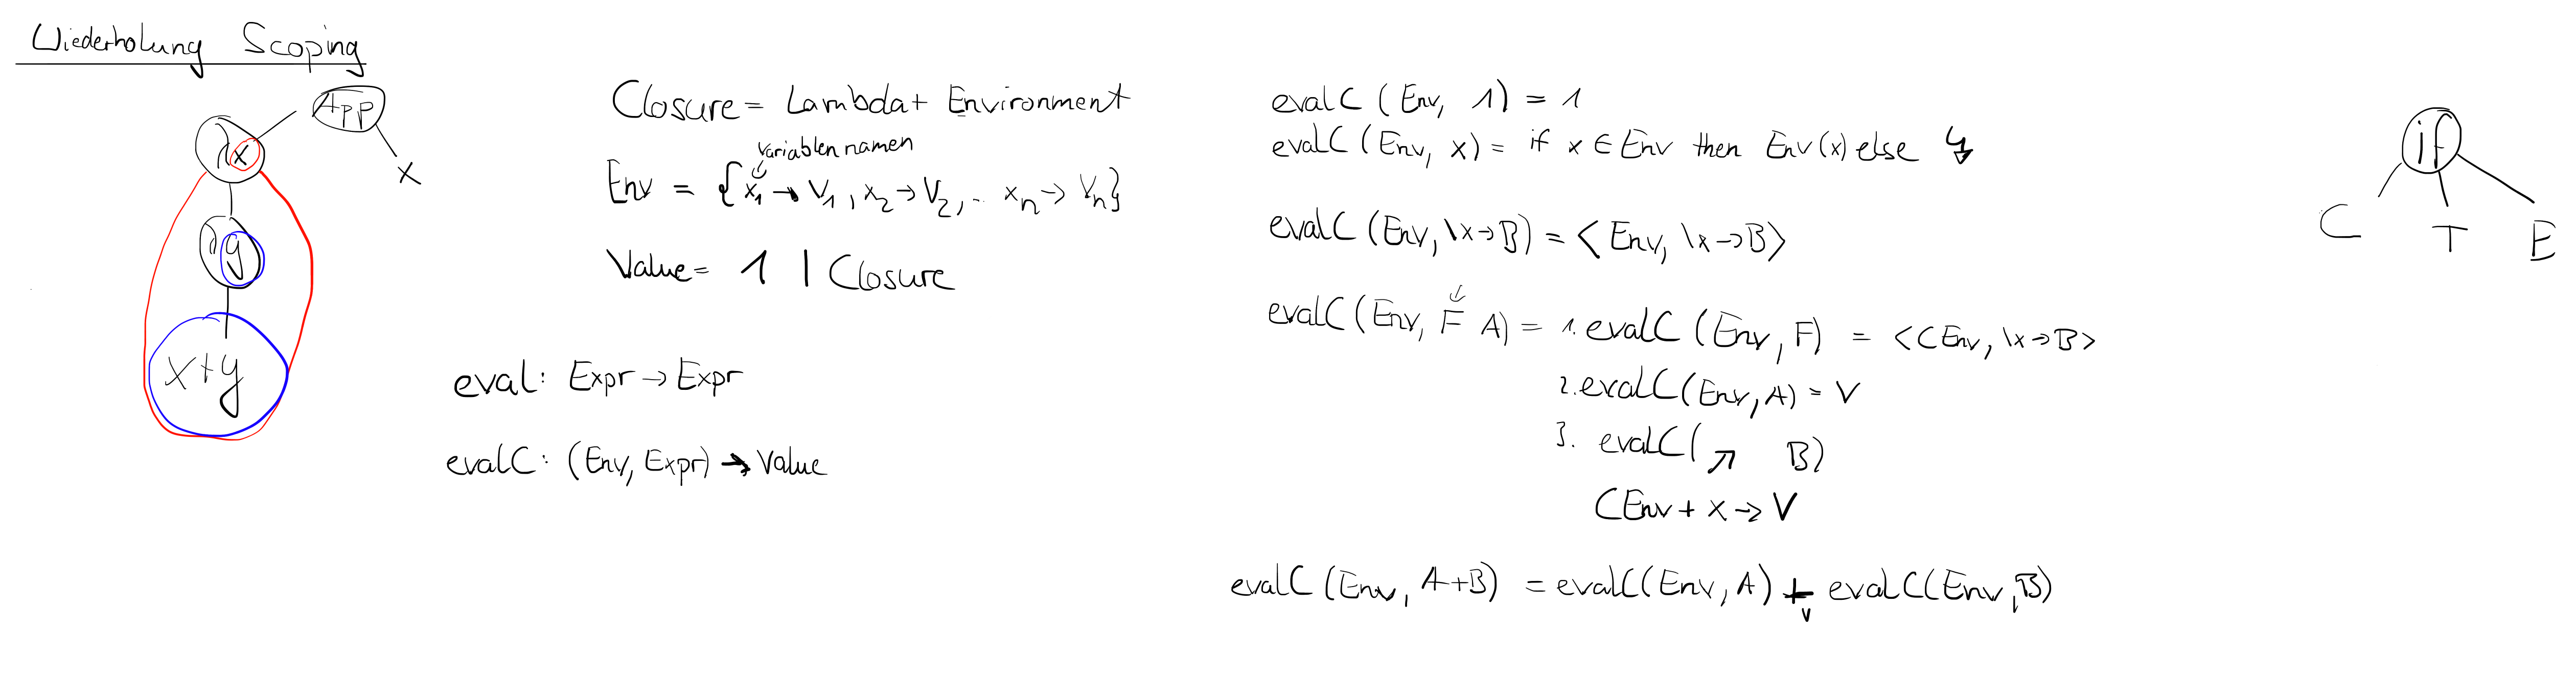 Wiederholung Scoping
App
λx
x
λy
x+y
Closure = Lambda + Environment
variablennamen
Env = {x₁ → V₁, x₂ → V₂, .. xₙ → Vₙ}
Value = 1 | Closure
eval: Expr → Expr
evalC: (Env, Expr) → Value
evalC (Env, 1) = 1
evalC (Env, x) = if x ∈ Env then Env(x) else ↯
evalC (Env, \x→B) = <Env, \x→B>
evalC (Env, F A) = 1. evalC (Env, F) = <CEnv, \x→B>
2. evalC (Env, A) = V
3. evalC ( ↗ B)
CEnv + x → V
evalC (Env, A+B) = evalC(Env, A) +ᵥ evalC(Env, B)
if
C T E